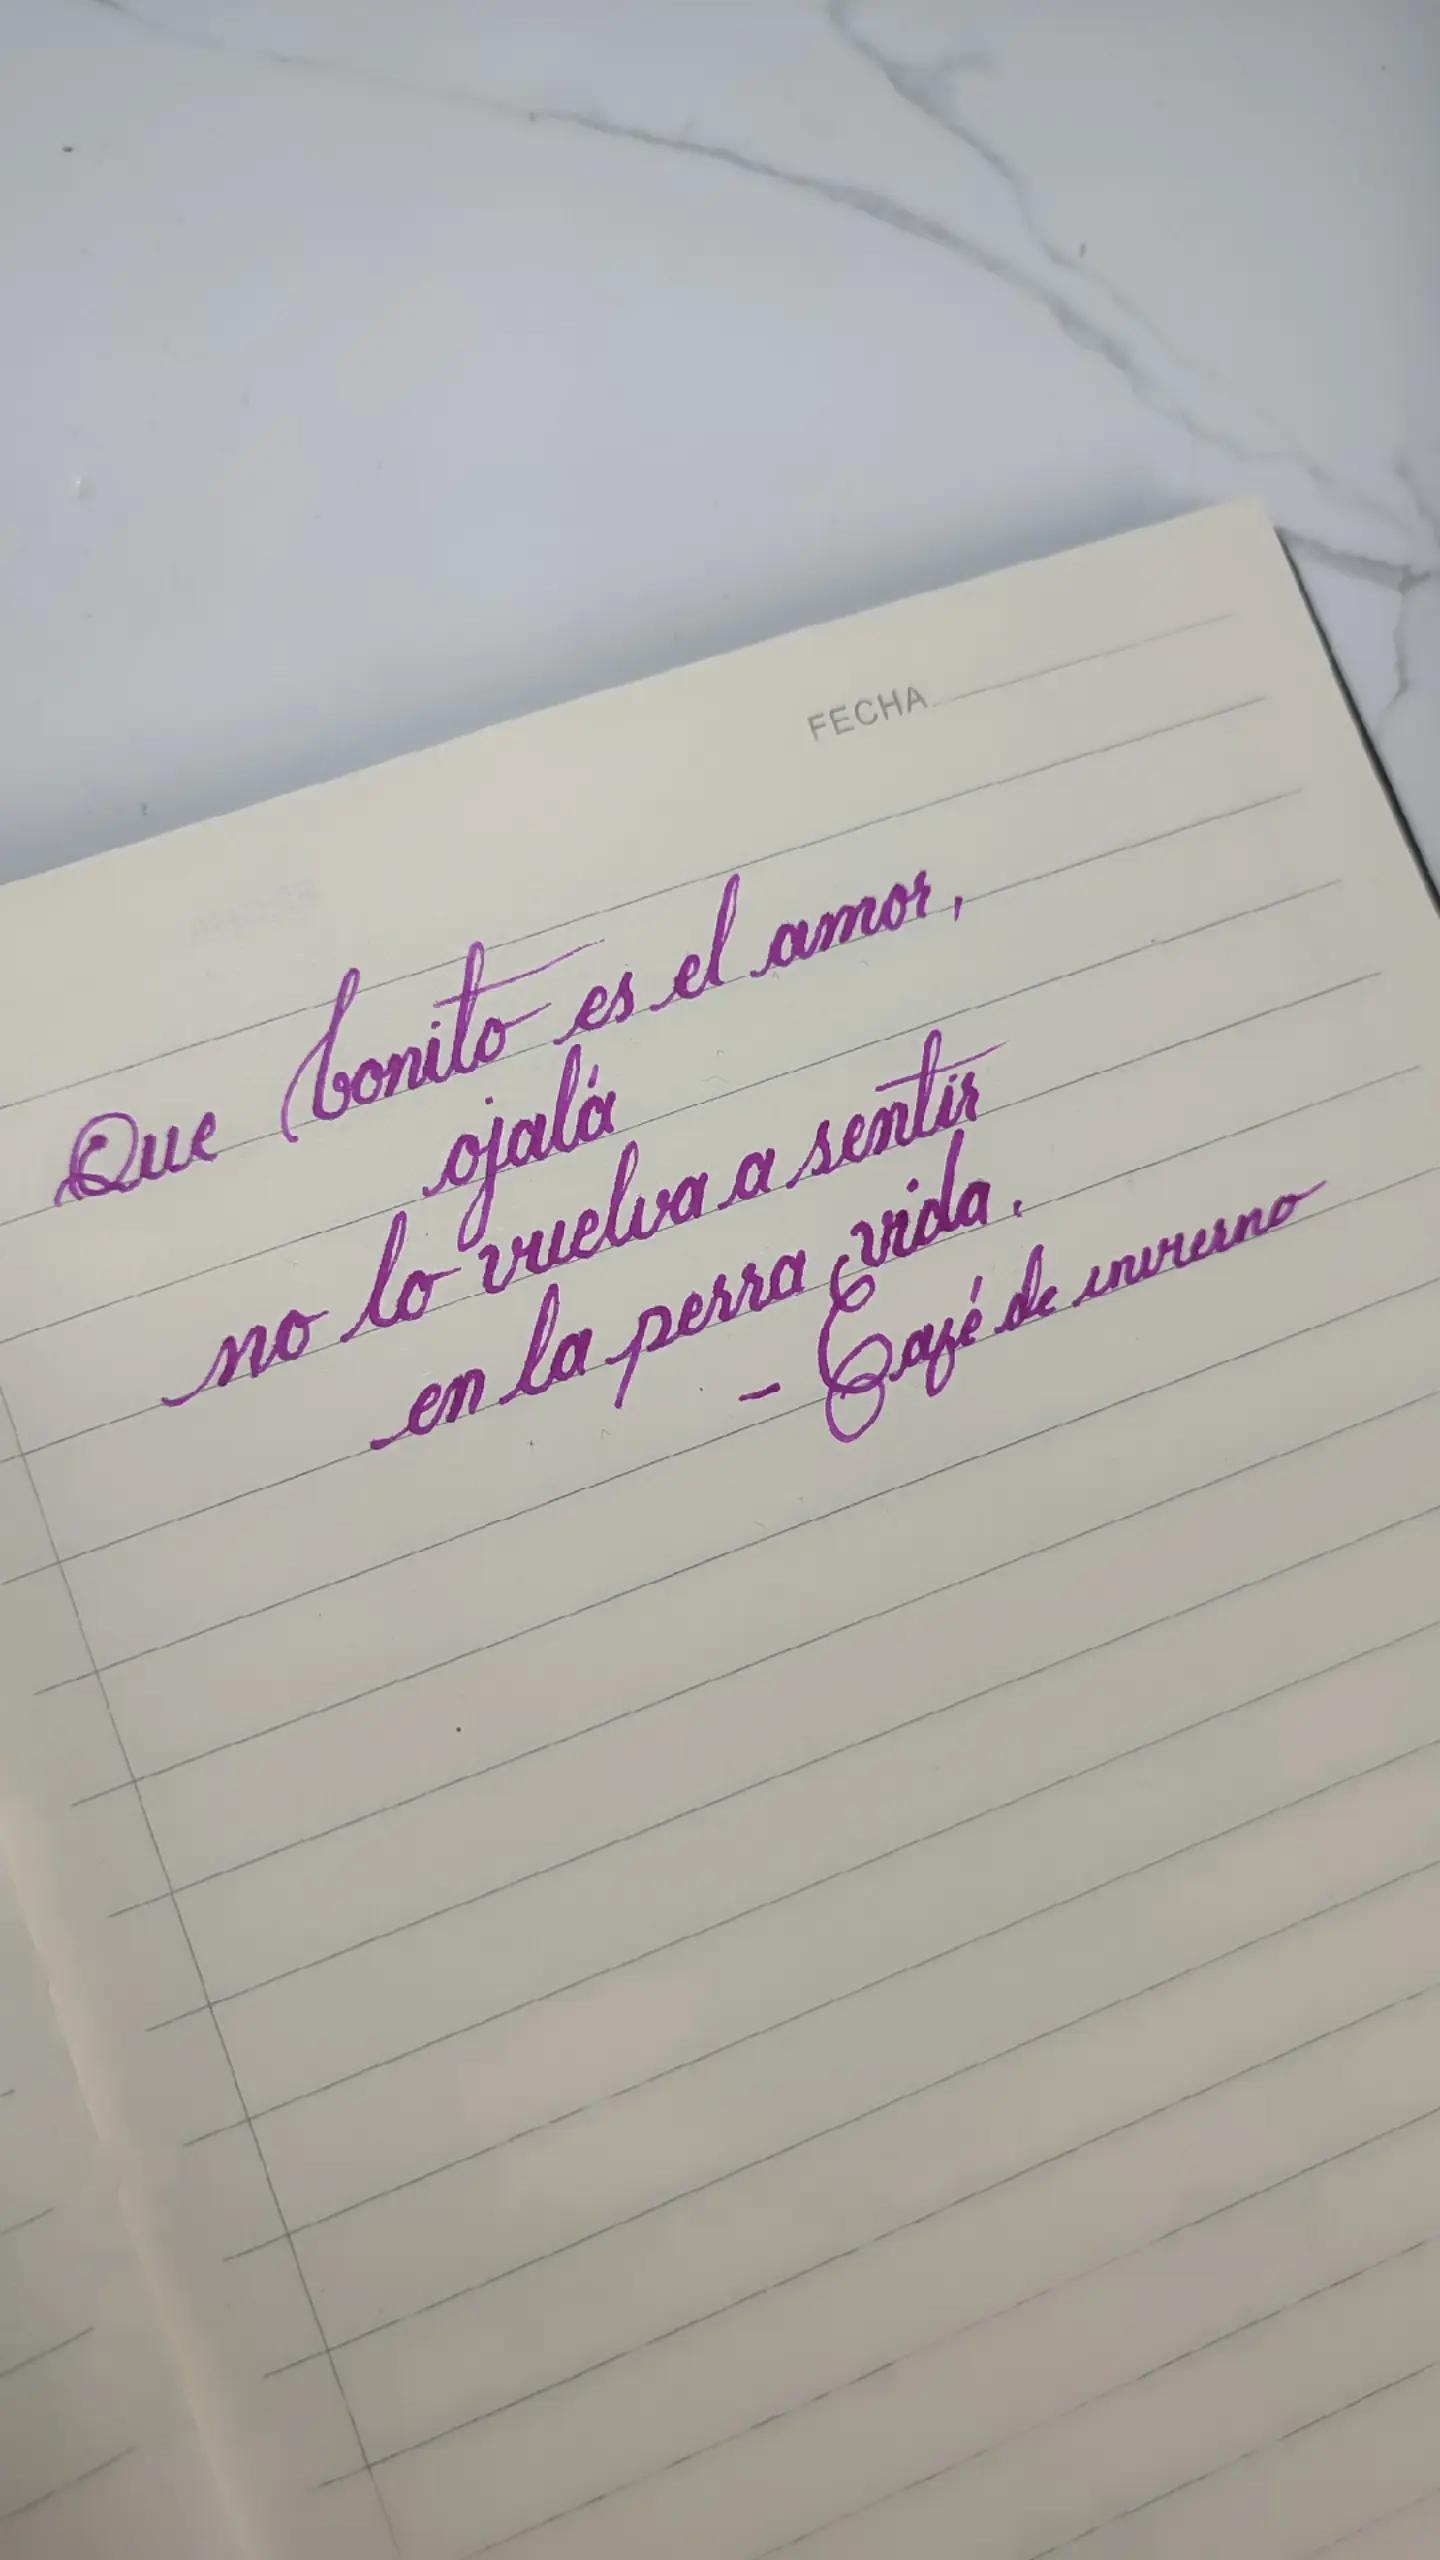 FECHA
Que bonito es el amor,
ojalá
no lo vuelva a sentir
en la perra vida.
- Café de invierno